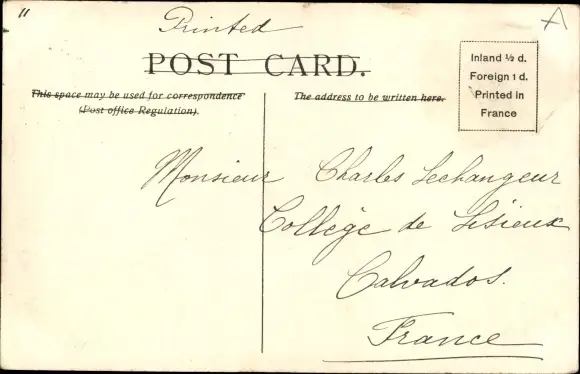 11
Printed
A
POST CARD.
This space may be used for correspondence
(Post office Regulation).
The address to be written here.
Inland ½ d.
Foreign 1 d.
Printed in
France
Monsieur Charles Lechangeur
Collège de Lisieux
Calvados.
France